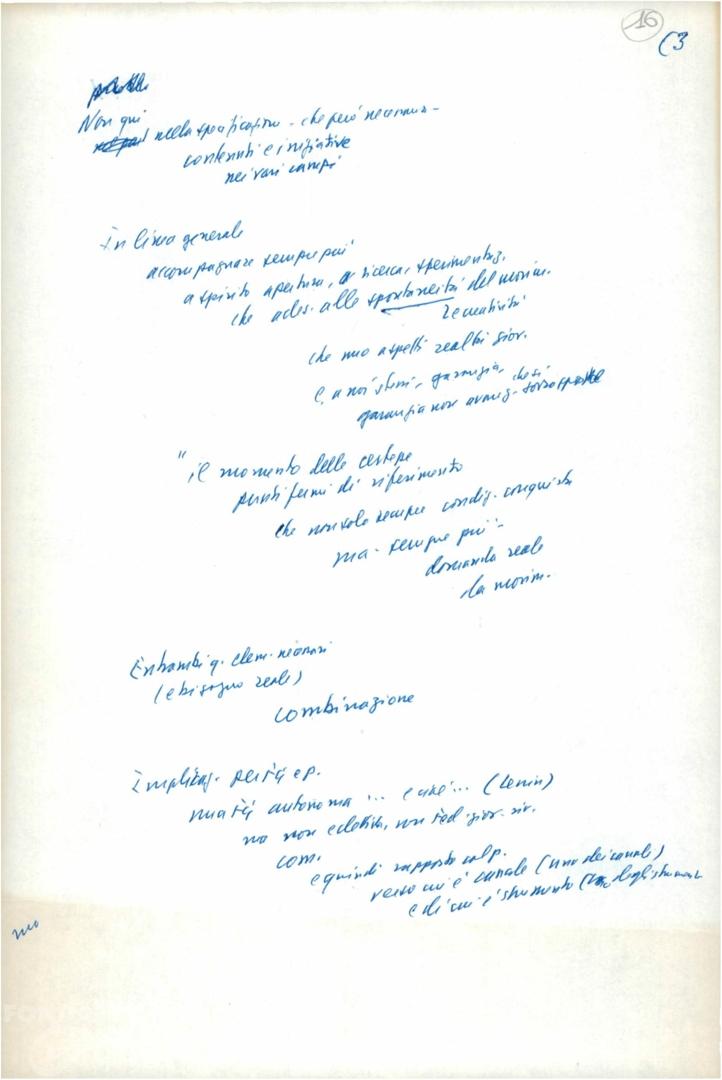 16
(3
Non qui
nella specificazione - che però necessaria -
contenuti e iniziative
nei vari campi
In linea generale
accompagnare sempre più
a spirito apertura, a ricerca, sperimentaz.
che ades. alle spontaneità del movim.
creatività
che suo aspetti realtà giov.
e, a noi stessi, garanzia, che si
garanzia non avang.
" il momento delle certezze
punti fermi di riferimento
che non solo sempre condiz. conquista
ma - sempre più -
domanda reale
da movim.
Entrambi q. elem. necessari
(e bisogno reale)
combinazione
Implicaz. per fgci e p.
autonoma ... e cioè ... (Lenin)
ma non eclettica, non fed. giov. riv.
com.
e quindi rapporto col p.
verso cui è canale (uno dei canali)
e di cui è strumento (uno degli strumenti